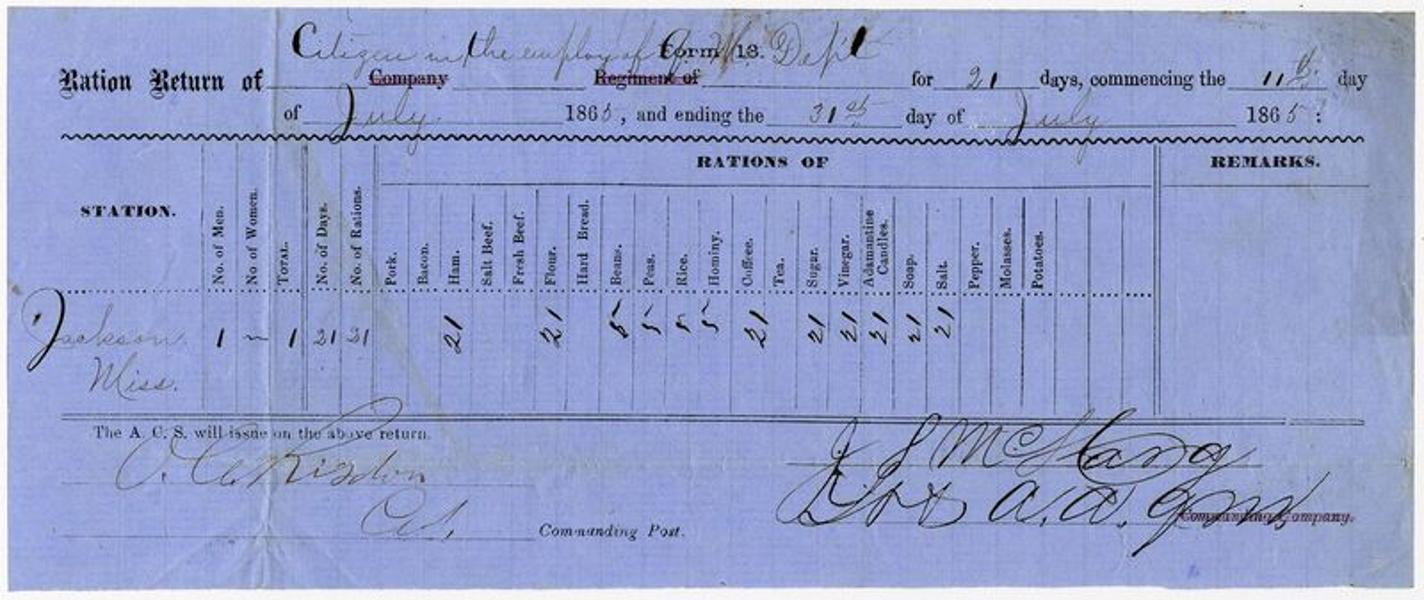 Form 18.
Citizen in the employ of Q. M. Dep't
Ration Return of Company Regiment of for 21 days, commencing the 11th day
of July 1865, and ending the 31st day of July 1865:
STATION. No. of Men. No of Women. TOTAL. No. of Days. No. of Rations. RATIONS OF REMARKS.
Pork. Bacon. Ham. Salt Beef. Fresh Beef. Flour. Hard Bread. Beans. Peas. Rice. Hominy. Coffee. Tea. Sugar. Vinegar. Adamantine Candles. Soap. Salt. Pepper. Molasses. Potatoes.
Jackson 1 " 1 21 21 21 21 5 5 5 5 21 21 21 21 21 21
Miss.
The A. C. S. will issue on the above return.
Risdon
Col. Commanding Post.
A. A. Q. M. Commanding Company.